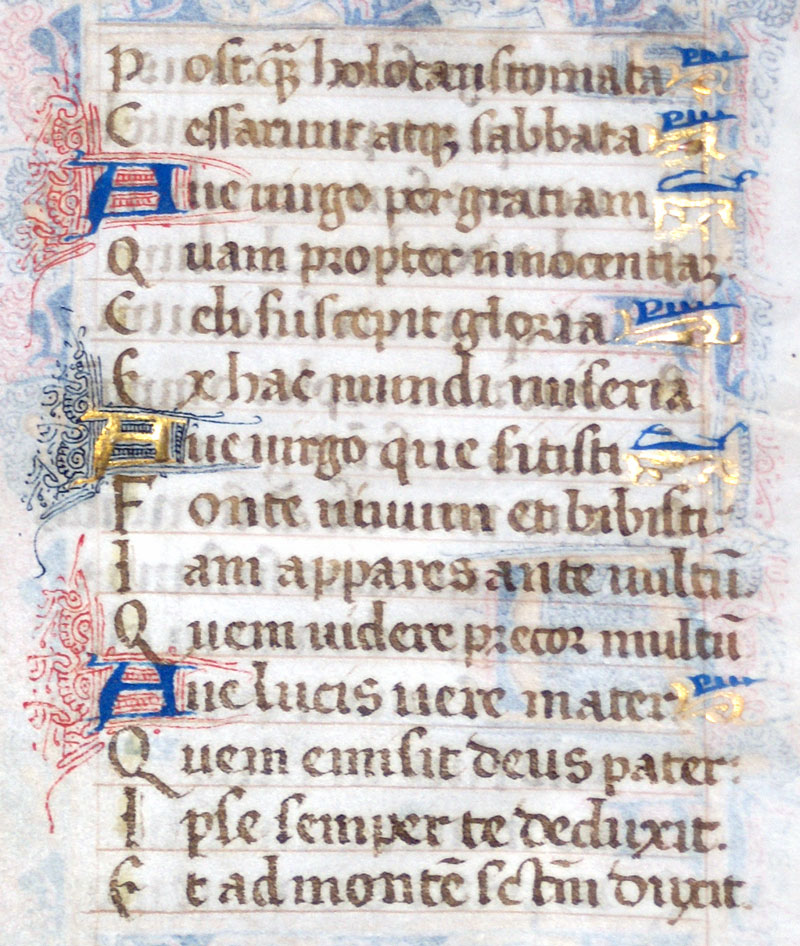 Post qᷓ holocaustomata
Cessarunt atqꝫ sabbata
Aue uirgo per gratiam
Quam propter innocentiaꝫ.
Celi suscepit gloria
Ex hac mundi miseria
Aue uirgo que sitisti
Fonte uiuum et bibisti.
Iam appares ante uultū.
Quem uidere precor multū
Aue lucis uere mater
Quem emisit deus pater:
Ipse semper te deduxit.
Et ad montē sctm̄ duxit.